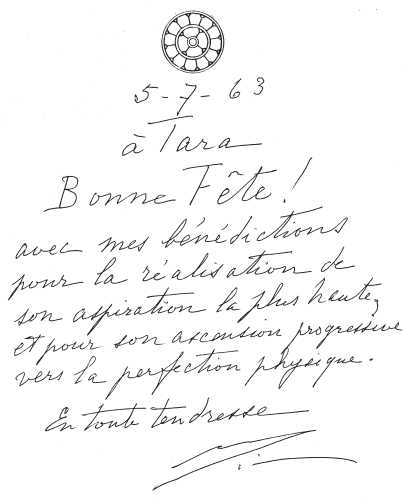 5-7-63
à Tara
Bonne Fête!
avec mes bénédictions
pour la réalisation de
son aspiration la plus haute,
et pour son ascension progressive
vers la perfection physique.
En toute tendresse